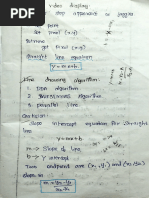 video display
step appearance is jaggies
point
Set pixel (x, y)
Retrieve
get pixel (x, y)
Straight line equation
y = mx + b.
Line drawing algorithm:
1. DDA algorithm
2. Bresenham's algorithm
3. parallel line.
Cartesian:
slope intercept equation for straight line
y = mx + b.
m → slope of line
b → y intercept
Two endpoints are (x1, y1) and (x2, y2)
slope m
m = y2 - y1 / x2 - x1